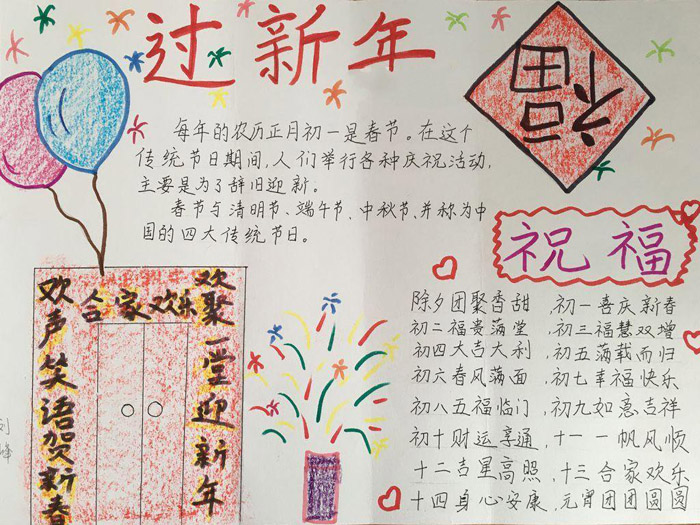 过新年
福
每年的农历正月初一是春节。在这个
传统节日期间,人们举行各种庆祝活动,
主要是为了辞旧迎新。
春节与清明节、端午节、中秋节、并称为中
国的四大传统节日。
祝福
除夕团聚香甜,初一喜庆新春
初二福贵满堂,初三福慧双增
初四大吉大利,初五满载而归
初六春风满面,初七幸福快乐
初八五福临门,初九如意吉祥
初十财运享通,十一一帆风顺
十二吉星高照,十三合家欢乐
十四身心安康,元宵团团圆圆
合家欢乐
欢声笑语贺新春
欢聚一堂迎新年
刘